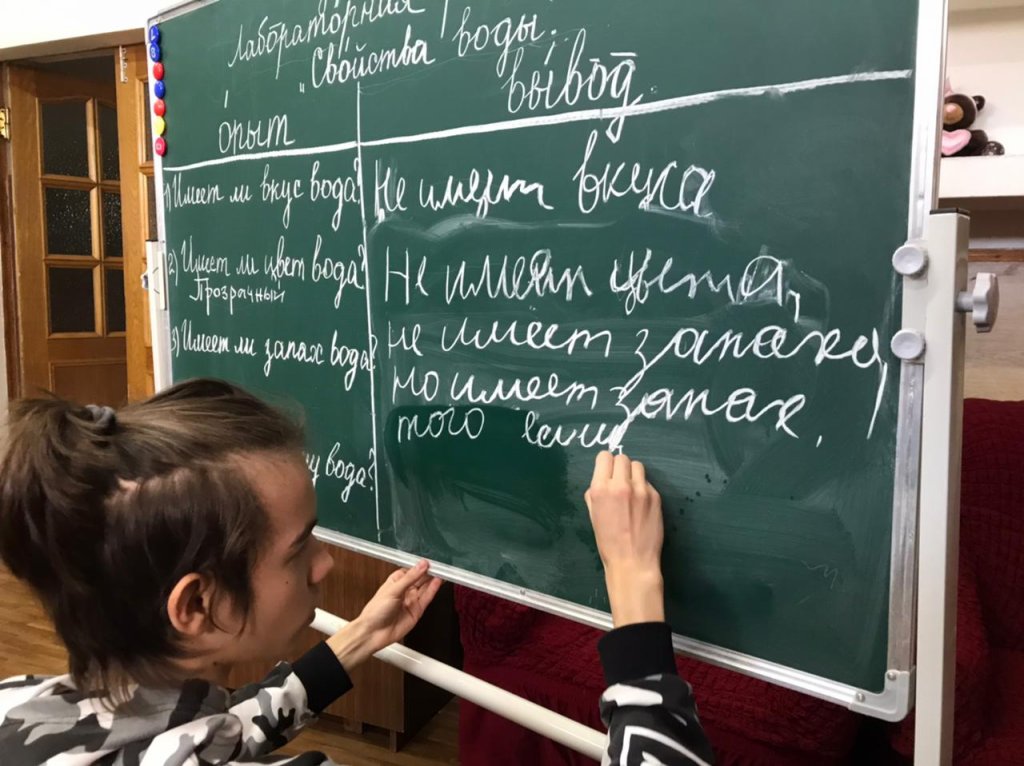 Лабораторния
"Свойства воды.
опыт
вывод.
1) Имеет ли вкус вода?
Не имеет вкуса
2) Имеет ли цвет вода?
Прозрачный
Не имеет цвета,
3) Имеет ли запах вода?
не имеет запаха,
но имеет запах,
того
вода?